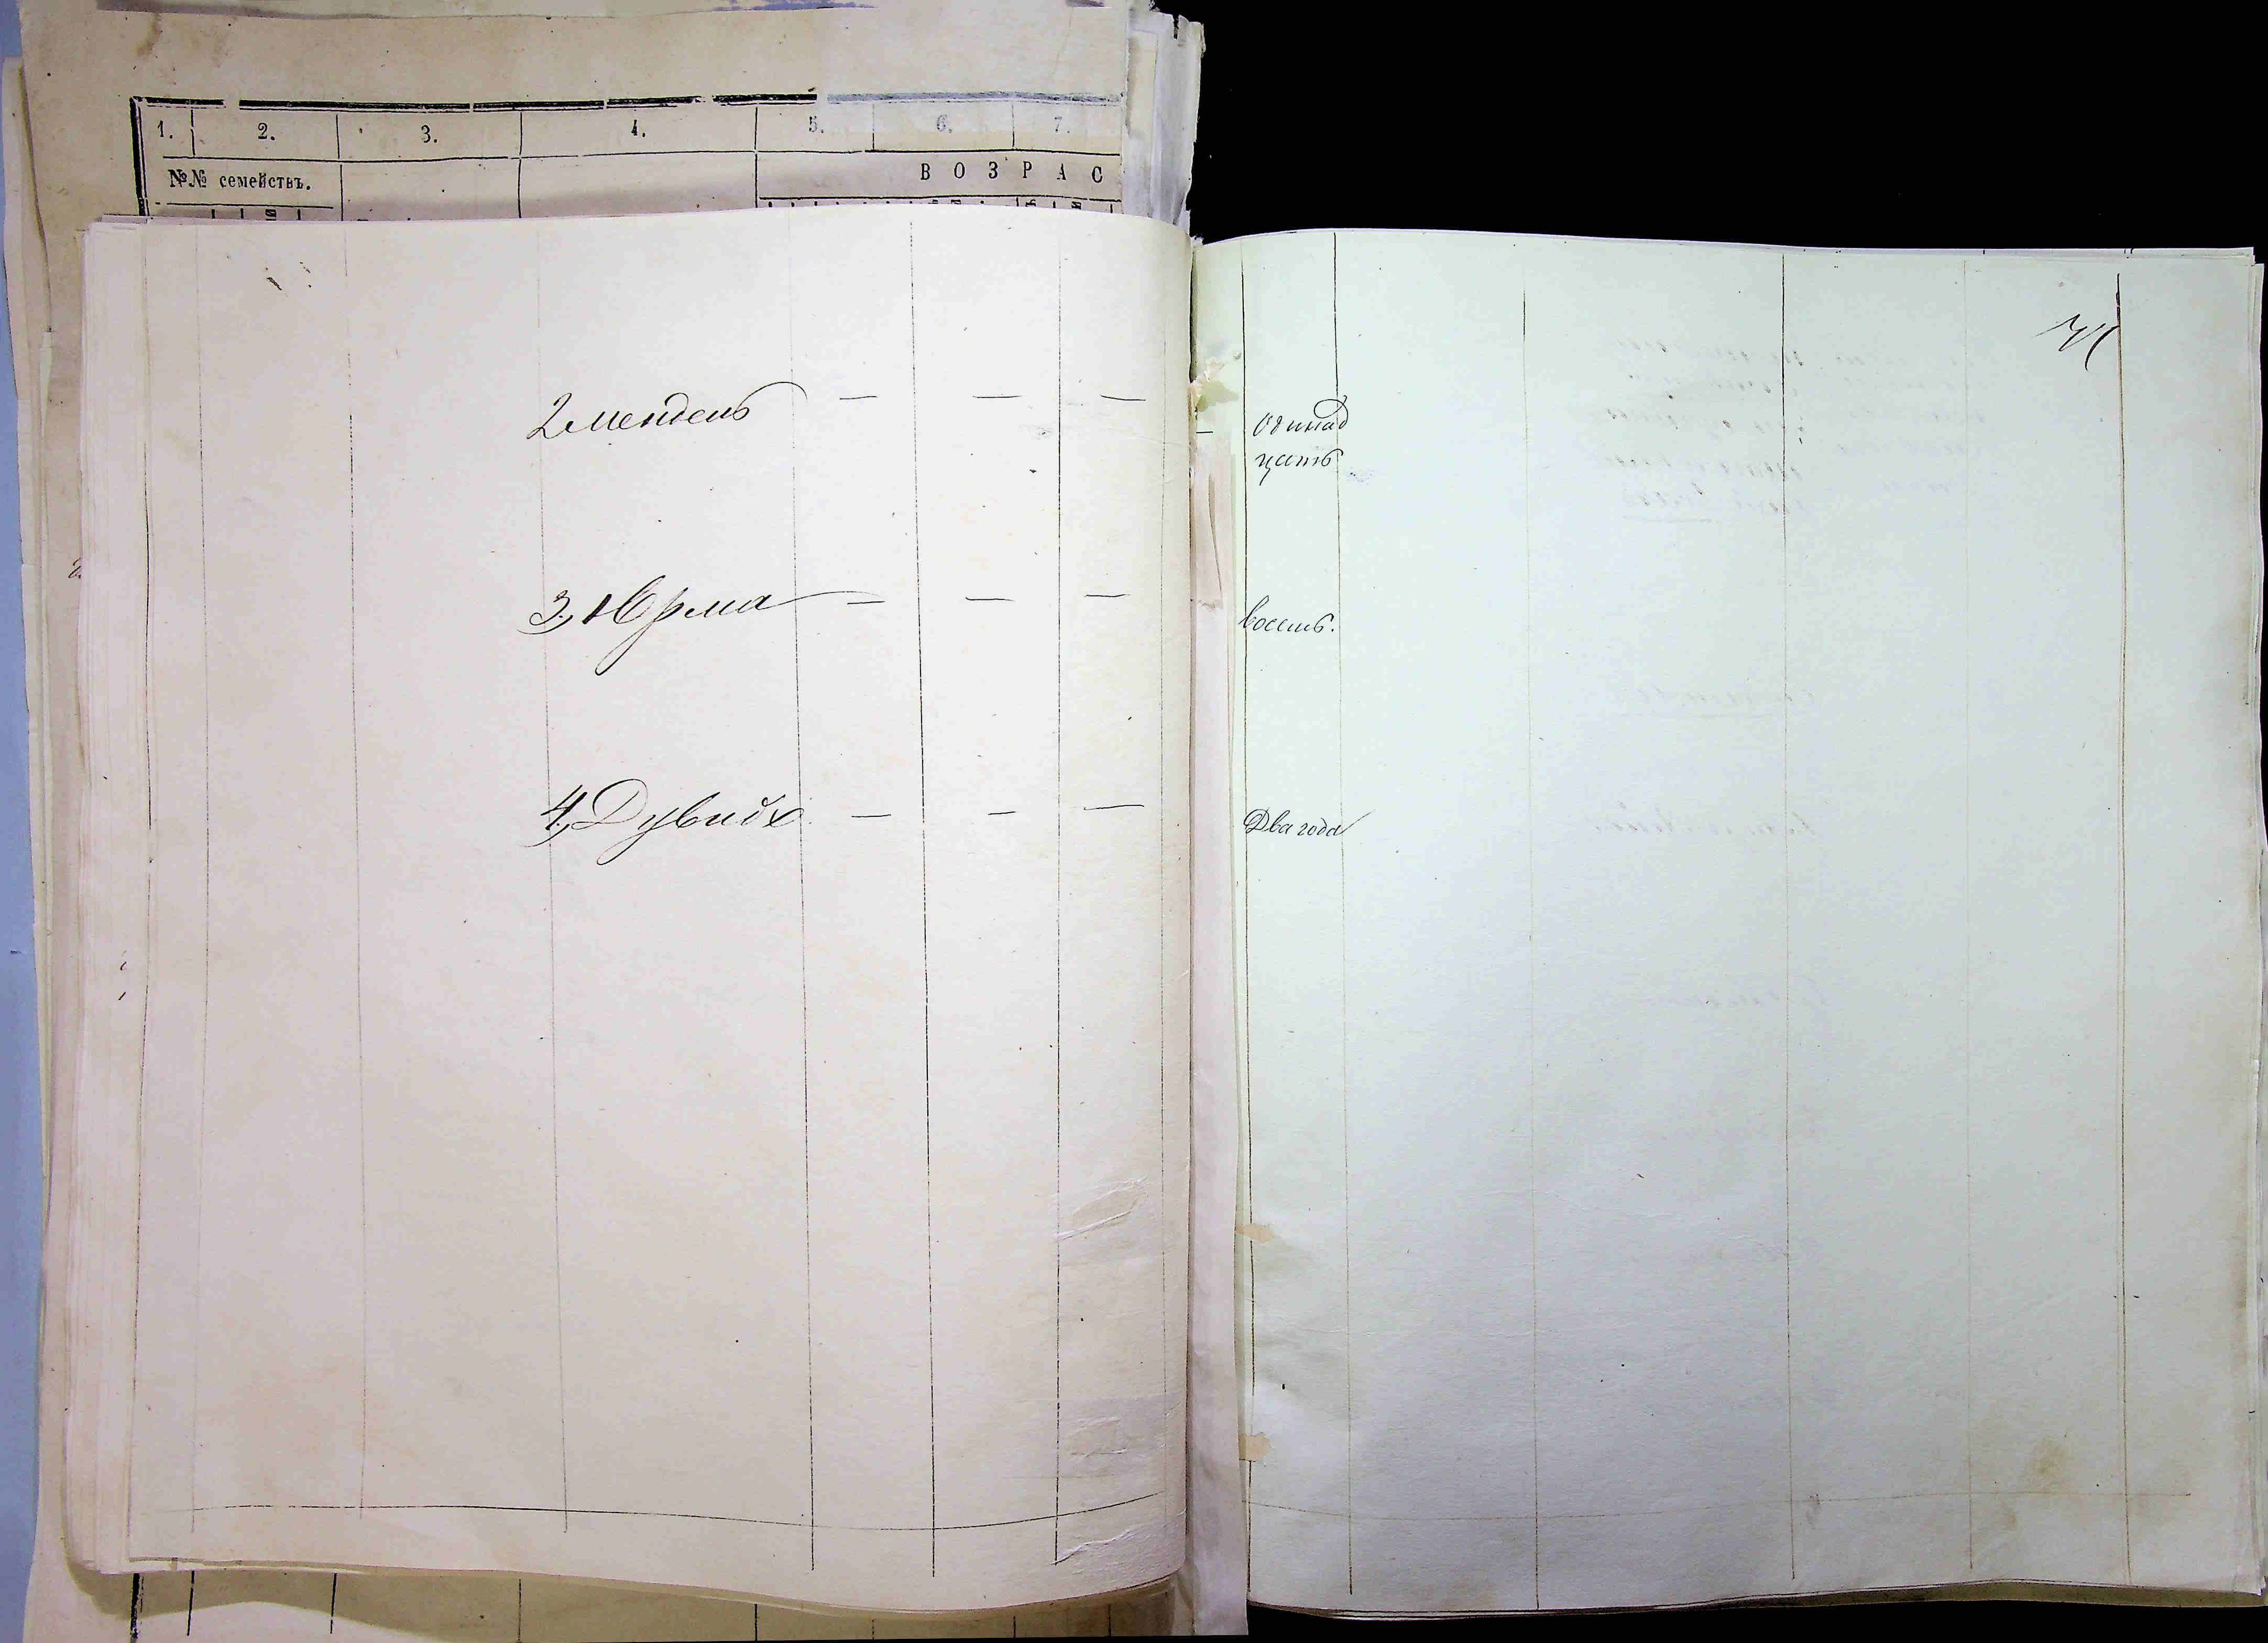 1. 2. 3. 4. 5. 6. 7.
№№ семействъ.
ВОЗРАС
2 Мендель — — — — Одинад
цать
3, Юрма — — — восемь.
4, Дувидъ — — — Два года